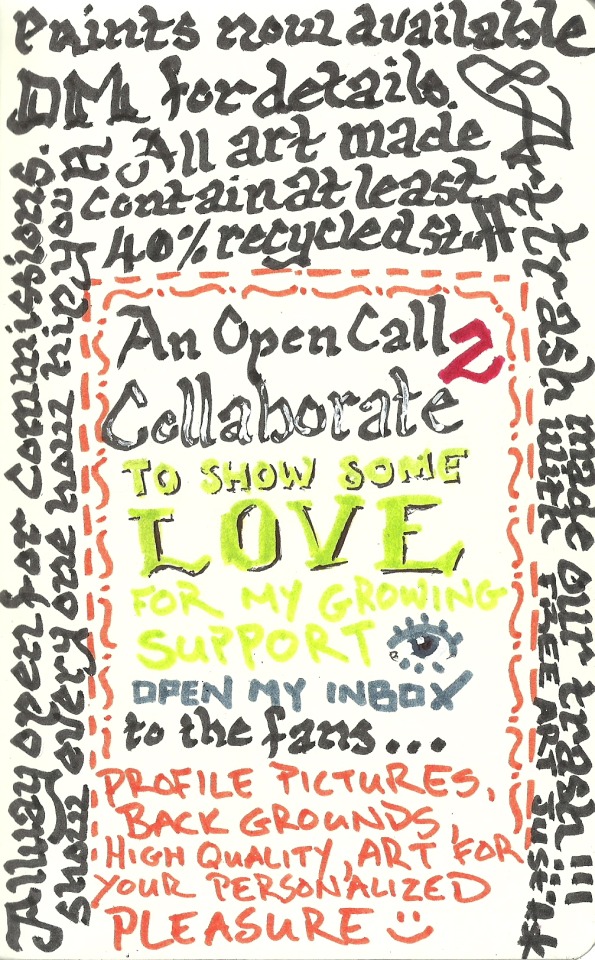 Prints now available
DM for details.
All art made
contain at least
40% recycled stuff
& Art trash made
with our trash!!!
FREE ART
Allway open for commissions.
show every one how hip you R
An Open Call 2
Collaborate
TO SHOW SOME
LOVE
FOR MY GROWING
SUPPORT
OPEN MY INBOX
to the fans...
PROFILE PICTURES,
BACK GROUNDS,
HIGH QUALITY, ART FOR
YOUR PERSONALIZED
PLEASURE